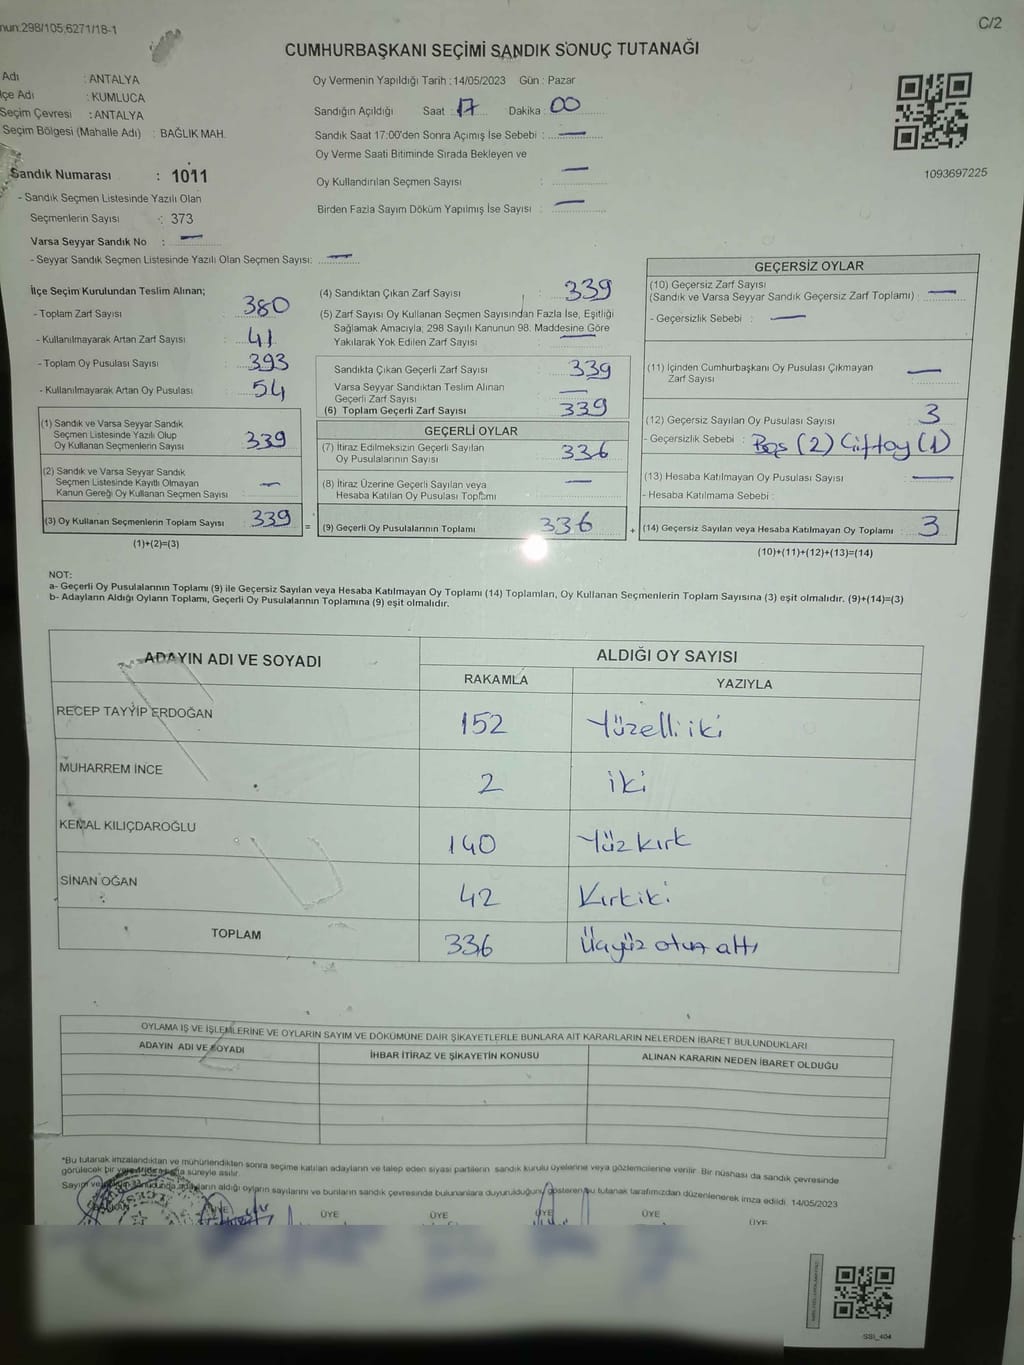 nun:298/105,6271/18-1
C/2
CUMHURBAŞKANI SEÇİMİ SANDIK SONUÇ TUTANAĞI
Adı : ANTALYA
İlçe Adı : KUMLUCA
Seçim Çevresi : ANTALYA
Seçim Bölgesi (Mahalle Adı) : BAĞLIK MAH.
Sandık Numarası : 1011
- Sandık Seçmen Listesinde Yazılı Olan
Seçmenlerin Sayısı : 373
Varsa Seyyar Sandık No : —
- Seyyar Sandık Seçmen Listesinde Yazılı Olan Seçmen Sayısı: —
Oy Vermenin Yapıldığı Tarih : 14/05/2023 Gün : Pazar
Sandığın Açıldığı Saat : 17 Dakika : 00
Sandık Saat 17:00'den Sonra Açımış İse Sebebi : —
Oy Verme Saati Bitiminde Sırada Bekleyen ve
Oy Kullandırılan Seçmen Sayısı : —
Birden Fazla Sayım Döküm Yapılmış İse Sayısı : —
1093697225
İlçe Seçim Kurulundan Teslim Alınan;
- Toplam Zarf Sayısı : 380
- Kullanılmayarak Artan Zarf Sayısı : 41
- Toplam Oy Pusulası Sayısı : 393
- Kullanılmayarak Artan Oy Pusulası : 54
(1) Sandık ve Varsa Seyyar Sandık
Seçmen Listesinde Yazılı Olup
Oy Kullanan Seçmenlerin Sayısı : 339
(2) Sandık ve Varsa Seyyar Sandık
Seçmen Listesinde Kayıtlı Olmayan
Kanun Gereği Oy Kullanan Seçmen Sayısı : —
(3) Oy Kullanan Seçmenlerin Toplam Sayısı : 339 =
(1)+(2)=(3)
(4) Sandıktan Çıkan Zarf Sayısı : 339
(5) Zarf Sayısı Oy Kullanan Seçmen Sayısından Fazla İse, Eşitliği
Sağlamak Amacıyla, 298 Sayılı Kanunun 98. Maddesine Göre
Yakılarak Yok Edilen Zarf Sayısı : —
Sandıkta Çıkan Geçerli Zarf Sayısı : 339
Varsa Seyyar Sandıktan Teslim Alınan
Geçerli Zarf Sayısı : —
(6) Toplam Geçerli Zarf Sayısı : 339
GEÇERLİ OYLAR
(7) İtiraz Edilmeksizin Geçerli Sayılan
Oy Pusulalarının Sayısı : 336
(8) İtiraz Üzerine Geçerli Sayılan veya
Hesaba Katılan Oy Pusulası Toplamı : —
(9) Geçerli Oy Pusulalarının Toplamı : 336 +
GEÇERSİZ OYLAR
(10) Geçersiz Zarf Sayısı
(Sandık ve Varsa Seyyar Sandık Geçersiz Zarf Toplamı) : —
- Geçersizlik Sebebi : —
(11) İçinden Cumhurbaşkanı Oy Pusulası Çıkmayan
Zarf Sayısı : —
(12) Geçersiz Sayılan Oy Pusulası Sayısı : 3
- Geçersizlik Sebebi : Boş (2) Çiftoy (1)
(13) Hesaba Katılmayan Oy Pusulası Sayısı : —
- Hesaba Katılmama Sebebi :
(14) Geçersiz Sayılan veya Hesaba Katılmayan Oy Toplamı : 3
(10)+(11)+(12)+(13)=(14)
NOT:
a- Geçerli Oy Pusulalarının Toplamı (9) ile Geçersiz Sayılan veya Hesaba Katılmayan Oy Toplamı (14) Toplamları, Oy Kullanan Seçmenlerin Toplam Sayısına (3) eşit olmalıdır. (9)+(14)=(3)
b- Adayların Aldığı Oyların Toplamı, Geçerli Oy Pusulalarının Toplamına (9) eşit olmalıdır.
ADAYIN ADI VE SOYADI
ALDIĞI OY SAYISI
RAKAMLA YAZIYLA
RECEP TAYYİP ERDOĞAN 152 Yüzelli iki
MUHARREM İNCE 2 iki
KEMAL KILIÇDAROĞLU 140 Yüz kırk
SİNAN OĞAN 42 Kırkiki
TOPLAM 336 Üçyüz otuz altı
OYLAMA İŞ VE İŞLEMLERİNE VE OYLARIN SAYIM VE DÖKÜMÜNE DAİR ŞİKAYETLERLE BUNLARA AİT KARARLARIN NELERDEN İBARET BULUNDUKLARI
ADAYIN ADI VE SOYADI İHBAR İTİRAZ VE ŞİKAYETİN KONUSU ALINAN KARARIN NEDEN İBARET OLDUĞU
*Bu tutanak imzalandıktan ve mühürlendikten sonra seçime katılan adayların ve talep eden siyasi partilerin sandık kurulu üyelerine veya gözlemcilerine verilir. Bir nüshası da sandık çevresinde
görülecek bir yere süreyle asılır.
Sayım ve adayların aldığı oyların sayılarını ve bunların sandık çevresinde bulunanlara duyurulduğunu gösteren bu tutanak tarafımızdan düzenlenerek imza edildi. 14/05/2023
ÜYE ÜYE ÜYE ÜYE ÜYE ÜYE
SSI_404